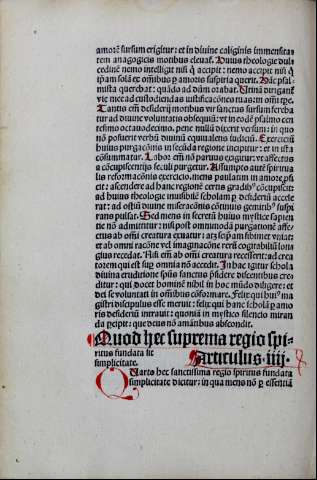 amorē sursum erigitur: et in diuine caliginis immensita
tem anagogicis motibus eleuat᷑. Huius theologie dul
cedinē nemo intelligit nisi q̇ accipit: nemo accipit nisi q̇
ip̄am solā ex oībus p̱ amoris suspiria querit. Hāc psal-
mista querebat: quādo ad dūm orabat. Vtinā dirigant᷑
vie mee ad custodiendas iustificacōnes tuas:
Tantis em̄ desiderij motibus vir sanctus sursum fereba
tur ad diuine voluntatis obsequiū: vt in eodē psalmo cen
tesimo octauodecimo. pene nullū dixerit versum: in quo
nō posuerit verbū diuinū equiualens iudiciū. Exerciciū
huius purgacōnis in secūda regione incipitur: et in ista
cōsummatur. Labor em̄ nō paruus exigitur: vt affectus
a cōcupiscentijs seculi purgetur. Assumpto aut̄ spiritua
lis reformacōnis exercicio. mens paulatim in amore p̱fi
cit: ascendere ad hanc regionē cernis gradib⁹ cōcupiscit:
ad huius theologie inuisibilē scholam p̱ desideriū accele
rat: ad ostiū diuine miseracōnis cōtinuis gemitib⁹ suspi
rans pulsat. Sed mens in secretū huius mystice sapien
tie nō admittitur: nisi post omnimodā purgationē affe-
ctus ab omni creatura exuat᷑: atq̇ semp̱ am
et ab omni racōne vel imaginacōne rerū cogitabiliū lon
gius recedat. Nisi em̄ ab omī creatura recesserit: ad crea
torem qui est sup̱ omnia nō accedit. In hac igitur schola
diuina eruditione spūs sanctus p̱sidere discentibus cre-
ditur: qui docet hominē nihil in hoc mūdo diligere: et
dei se voluntati in oībus cōformare. Felix qui hui⁹ ma
gistri discipulus esse meruit: felix qui hanc scholā p̱ amo
ris desideriū intrauit: quoniā in mystico silencio miran
da p̱cipit: que deus nōn amātibus abscondit.
Quod hec suprema regio spi-
ritus fundata sit
simplicitate.
Articulus iiij.
QVarto hec sanctissima regio spiritus fundata
simplicitate dicitur: in qua mens nō p̱ essentiā